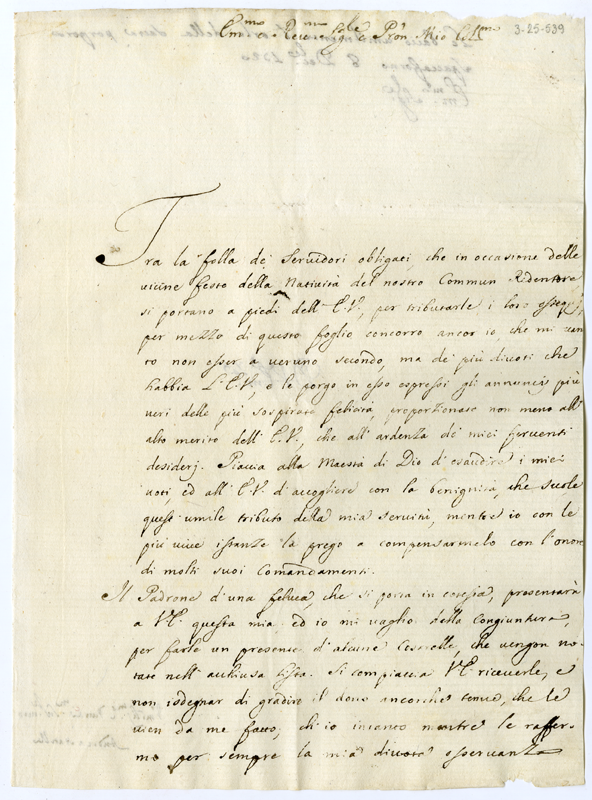 Em.mo e Rev.mo Sig.re Pron Mio Col.mo
3-25-539
Tra la folla de' Servidori obligati, che in occasione delle
vicine feste della Natività del nostro Commun Redentore
si portano a' piedi dell'E.V., per tributarle i loro ossequj,
per mezzo di questo foglio concorro ancor io, che mi van
to non esser a veruno secondo, ma de' più divoti che
habbia l'E.V., e le porgo in esso espressi gli annuncij più
veri delle più sospirate felicità, proporzionate non meno all'
alto merito dell'E.V., che all'ardenza de' miei ferventi
desiderj. Piaccia alla Maestà di Dio d'esaudire i miei
voti, ed all'E.V. d'accogliere con la benignità, che suole
quest'umile tributo della mia servitù, mentre io con le
più vive istanze la prego a compensarmelo con l'onore
di molti suoi Comandamenti.
Il Padrone d'una feluca, che si porta in cotesta, presentarà
a V.E. questa mia: ed io mi vaglio della congiuntura,
per farle un presente d'alcune cosarelle, che vengon no
tate nell'acchiusa lista. Si compiaccia V.E. riceverle, e
non isdegnar di gradire il dono ancorche tenue, che le
vien da me fatto, ch'io intanto mentre le raffer
mo per sempre la mia divota osservanza